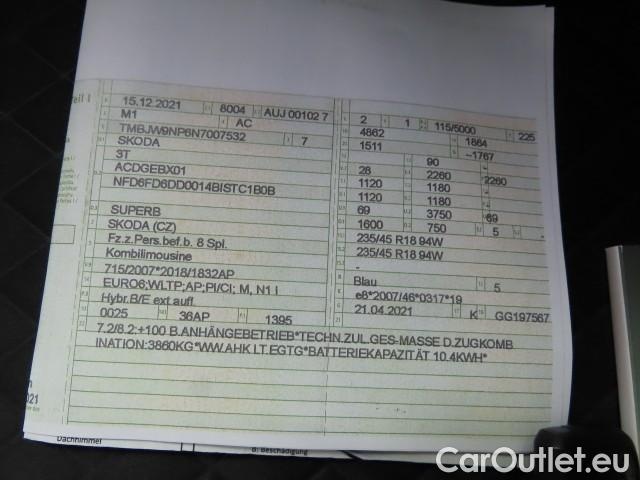 Teil I
15.12.2021 8004 AUJ 00102 7
M1 AC
TMBJW9NP6N7007532 7
SKODA
3T
ACDGEBX01
NFD6FD6DD0014BISTC1B0B
SUPERB
SKODA (CZ)
Fz.z.Pers.bef.b. 8 Spl.
Kombilimousine
715/2007*2018/1832AP
EURO6;WLTP;AP;PI/CI; M, N1 I
Hybr.B/E ext aufl
0025 36AP 1395
2 1 115/5000 225
4862 1864
1511 ~1767
90
28 2260 2260
1120 1180
1120 1180
69 3750 69
1600 750 5 -
235/45 R18 94W
235/45 R18 94W
-
Blau 5
e8*2007/46*0317*19
21.04.2021 K GG197567
7.2/8.2:+100 B.ANHÄNGEBETRIEB*TECHN.ZUL.GES-MASSE D.ZUGKOMB
INATION:3860KG*WW.AHK LT.EGTG*BATTERIEKAPAZITÄT 10.4KWH*
021
Dachhimmel
B. Beschädigung
CarOutlet.eu